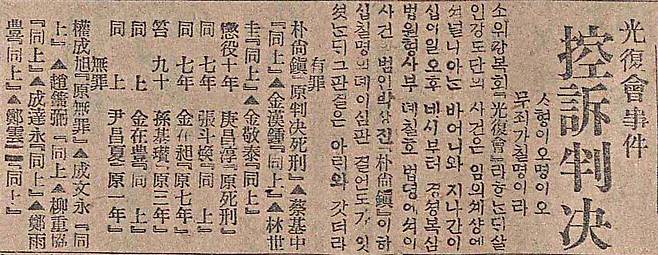 光復會事件
控訴判決
사형이오명이오
무죄가칠명이라
소위광복회『光復會』라하는데살
인강도단의 사건은 임의세상에
바어니와 지나간이
십이일오후 네시부터 경성복심
법원형사부 데칠호 법뎡에셔이
사건의범인박상진『朴尙鎭』이하
십칠명의데이심판 결언도가 잇
셧는듸그판결은 아래와 갓더라
有罪
朴尙鎭『原判决死刑』▲蔡基中
『同上』▲金漢鍾『同上』▲林世
圭『同上』▲金敬泰『同上』
懲役十年 庚昌淳『原死刑』
同 七年 張斗煥『同上』
同 七年 金在昶『原七年』
笞 九十 孫基瓚『原三年』
同 上 金在豊『同上』
同 上 尹昌夏『原一年』
無罪
權成旭『原無罪』▲成文永『同
上』▲趙鍾弼『同上』▲柳重協
『同上』▲成達永『同上』▲鄭雨
豊『同上』▲鄭雲『同上』